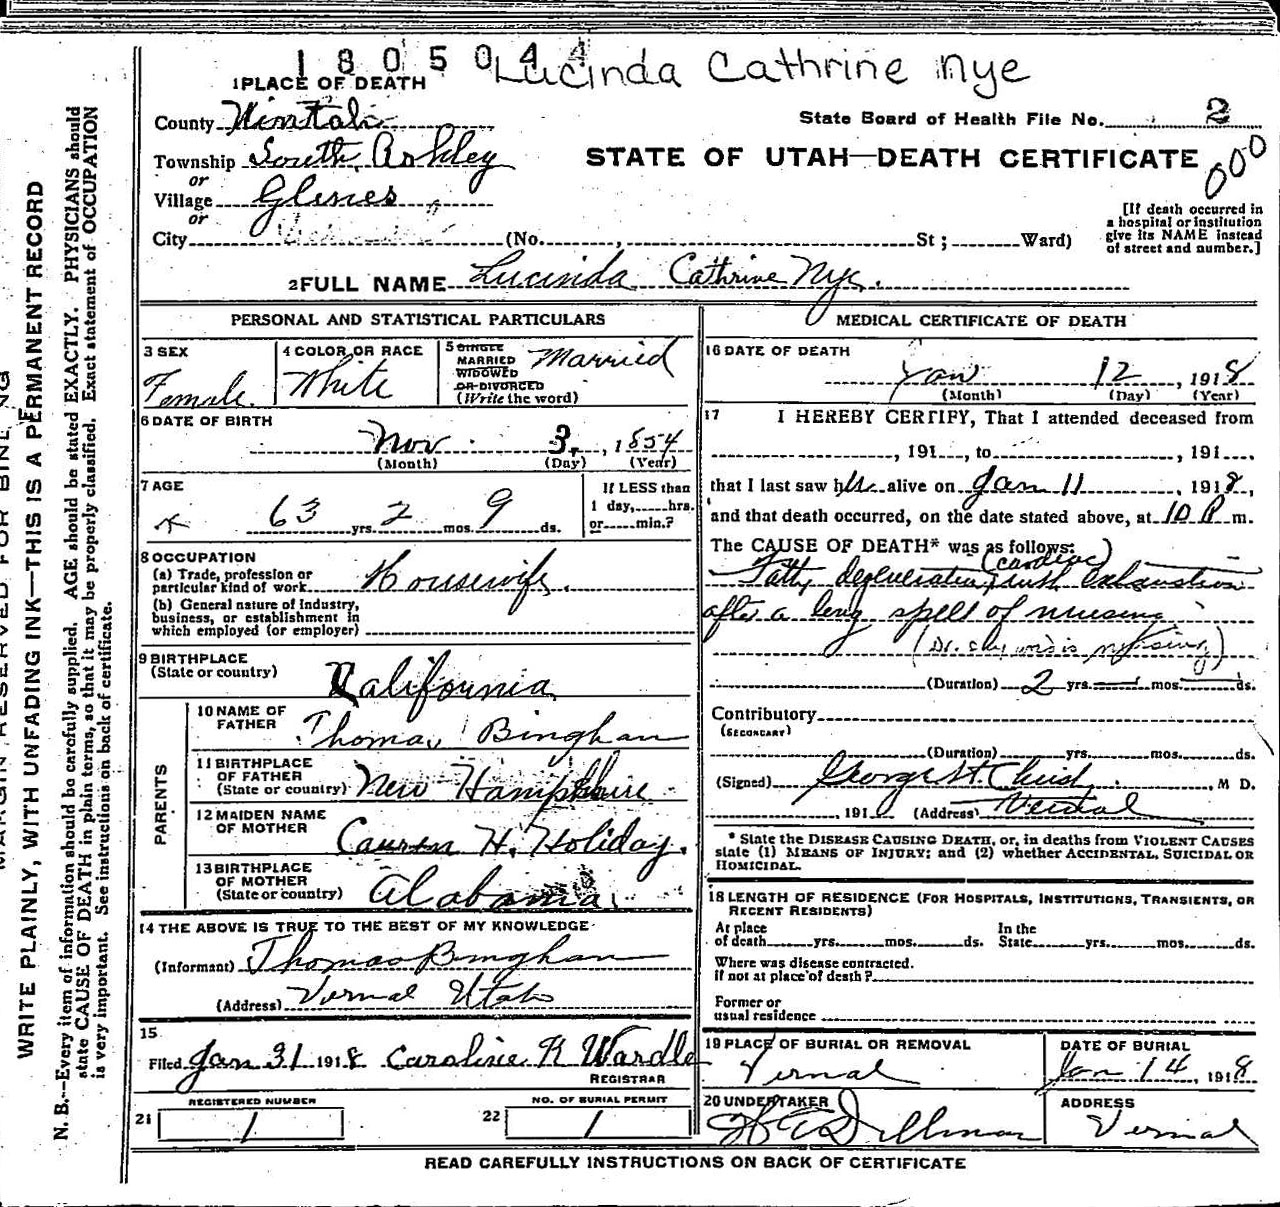 1805044
Lucinda Cathrine Nye
1 PLACE OF DEATH
County Uintah
State Board of Health File No. 2
000
Township South Ashley
STATE OF UTAH—DEATH CERTIFICATE
or
Village Glines
or
City (No. , St ; Ward)
[If death occurred in
a hospital or institution
give its NAME instead
of street and number.]
2 FULL NAME Lucinda Cathrine Nye.
PERSONAL AND STATISTICAL PARTICULARS
3 SEX
Female
4 COLOR OR RACE
White
5 SINGLE
MARRIED
WIDOWED
OR DIVORCED
(Write the word)
Married
6 DATE OF BIRTH
Nov 3, 1854
(Month) (Day) (Year)
7 AGE
63 yrs. 2 mos. 9 ds.
If LESS than
1 day, hrs.
or min.?
8 OCCUPATION
(a) Trade, profession or
particular kind of work Housewife.
(b) General nature of Industry,
business, or establishment in
which employed (or employer)
9 BIRTHPLACE
(State or country) California
PARENTS
10 NAME OF
FATHER Thomas Bingham
11 BIRTHPLACE
OF FATHER
(State or country) New Hampshire
12 MAIDEN NAME
OF MOTHER H. Holiday.
13 BIRTHPLACE
OF MOTHER
(State or country) Alabama
14 THE ABOVE IS TRUE TO THE BEST OF MY KNOWLEDGE
(Informant) Thomas Bingham
(Address) Vernal Utah
15
Filed Jan 31 1918 Caroline R Wardle
REGISTRAR
21 REGISTERED NUMBER
1
22 NO. OF BURIAL PERMIT
1
MEDICAL CERTIFICATE OF DEATH
16 DATE OF DEATH
Jan 12, 1918
(Month) (Day) (Year)
17 I HEREBY CERTIFY, That I attended deceased from
, 191 , to , 191 ,
that I last saw her alive on Jan 11 1918,
and that death occurred, on the date stated above, at 10 P m.
The CAUSE OF DEATH* was as follows:
(cardiac)
Fatty degeneration, with exhaustion
after a long spell of nursing
(Duration) 2 yrs. mos. ds.
Contributory
(SECONDARY)
(Duration) yrs. mos. ds.
(Signed) George H. , M D.
, 191 (Address) Vernal
* State the DISEASE CAUSING DEATH, or, in deaths from VIOLENT CAUSES
state (1) MEANS OF INJURY; and (2) whether ACCIDENTAL, SUICIDAL OR
HOMICIDAL.
18 LENGTH OF RESIDENCE (FOR HOSPITALS, INSTITUTIONS, TRANSIENTS, OR
RECENT RESIDENTS)
At place
of death yrs. mos. ds.
In the
State yrs. mos. ds.
Where was disease contracted.
if not at place of death?
Former or
usual residence
19 PLACE OF BURIAL OR REMOVAL
Vernal
DATE OF BURIAL
Jan 14, 1918
20 UNDERTAKER
Dillman
ADDRESS
Vernal
READ CAREFULLY INSTRUCTIONS ON BACK OF CERTIFICATE
MARGIN RESERVED FOR BINDING
WRITE PLAINLY, WITH UNFADING INK—THIS IS A PERMANENT RECORD
N. B.—Every item of information should be carefully supplied. AGE should be stated EXACTLY. PHYSICIANS should
state CAUSE OF DEATH in plain terms, so that it may be properly classified. Exact statement of OCCUPATION
is very important. See instructions on back of certificate.